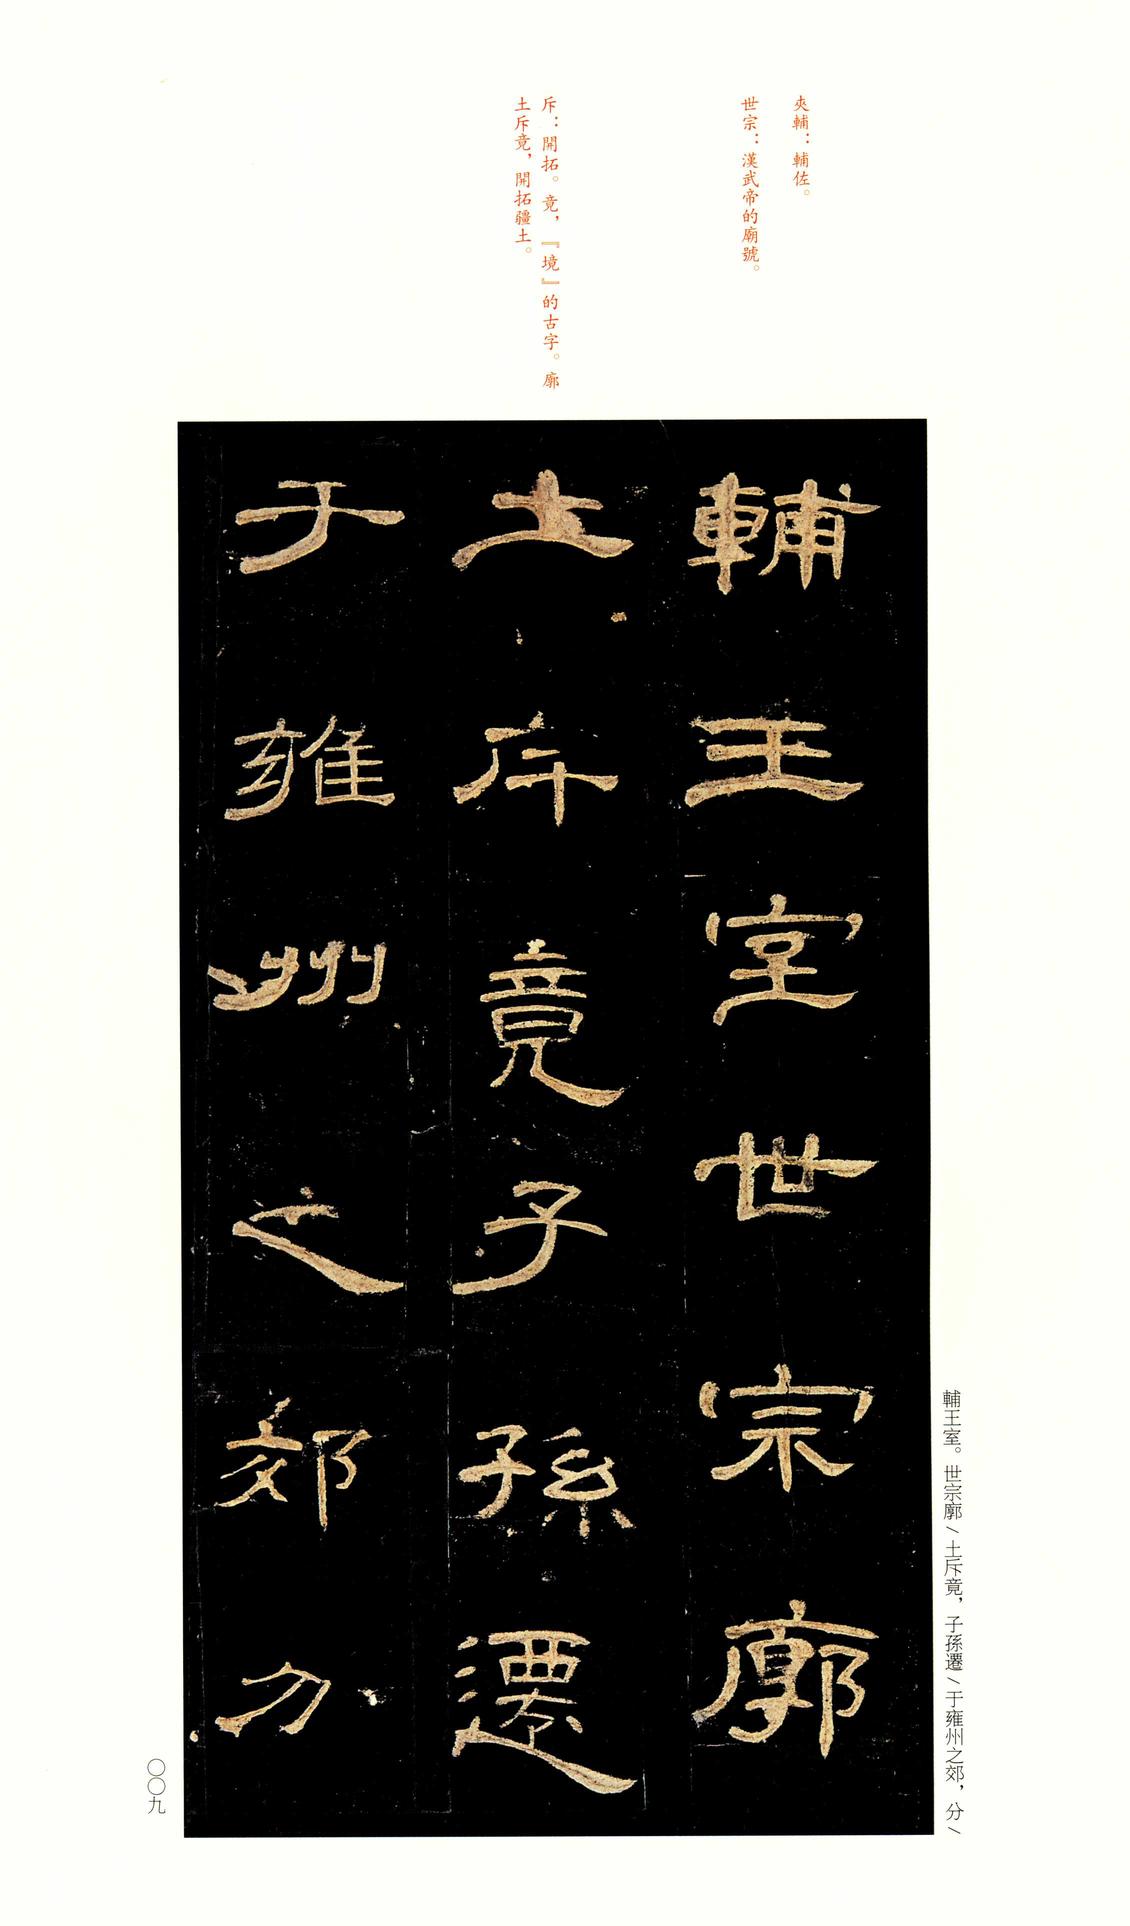 夾輔：輔佐。
世宗：漢武帝的廟號。
斥：開拓。竟，『境』的古字。廓
土斥竟，開拓疆土。
輔王室世宗廓
土斥竟子孫遷
于雍州之郊分
輔王室。世宗廓／土斥竟，子孫遷／于雍州之郊，分／
〇〇九